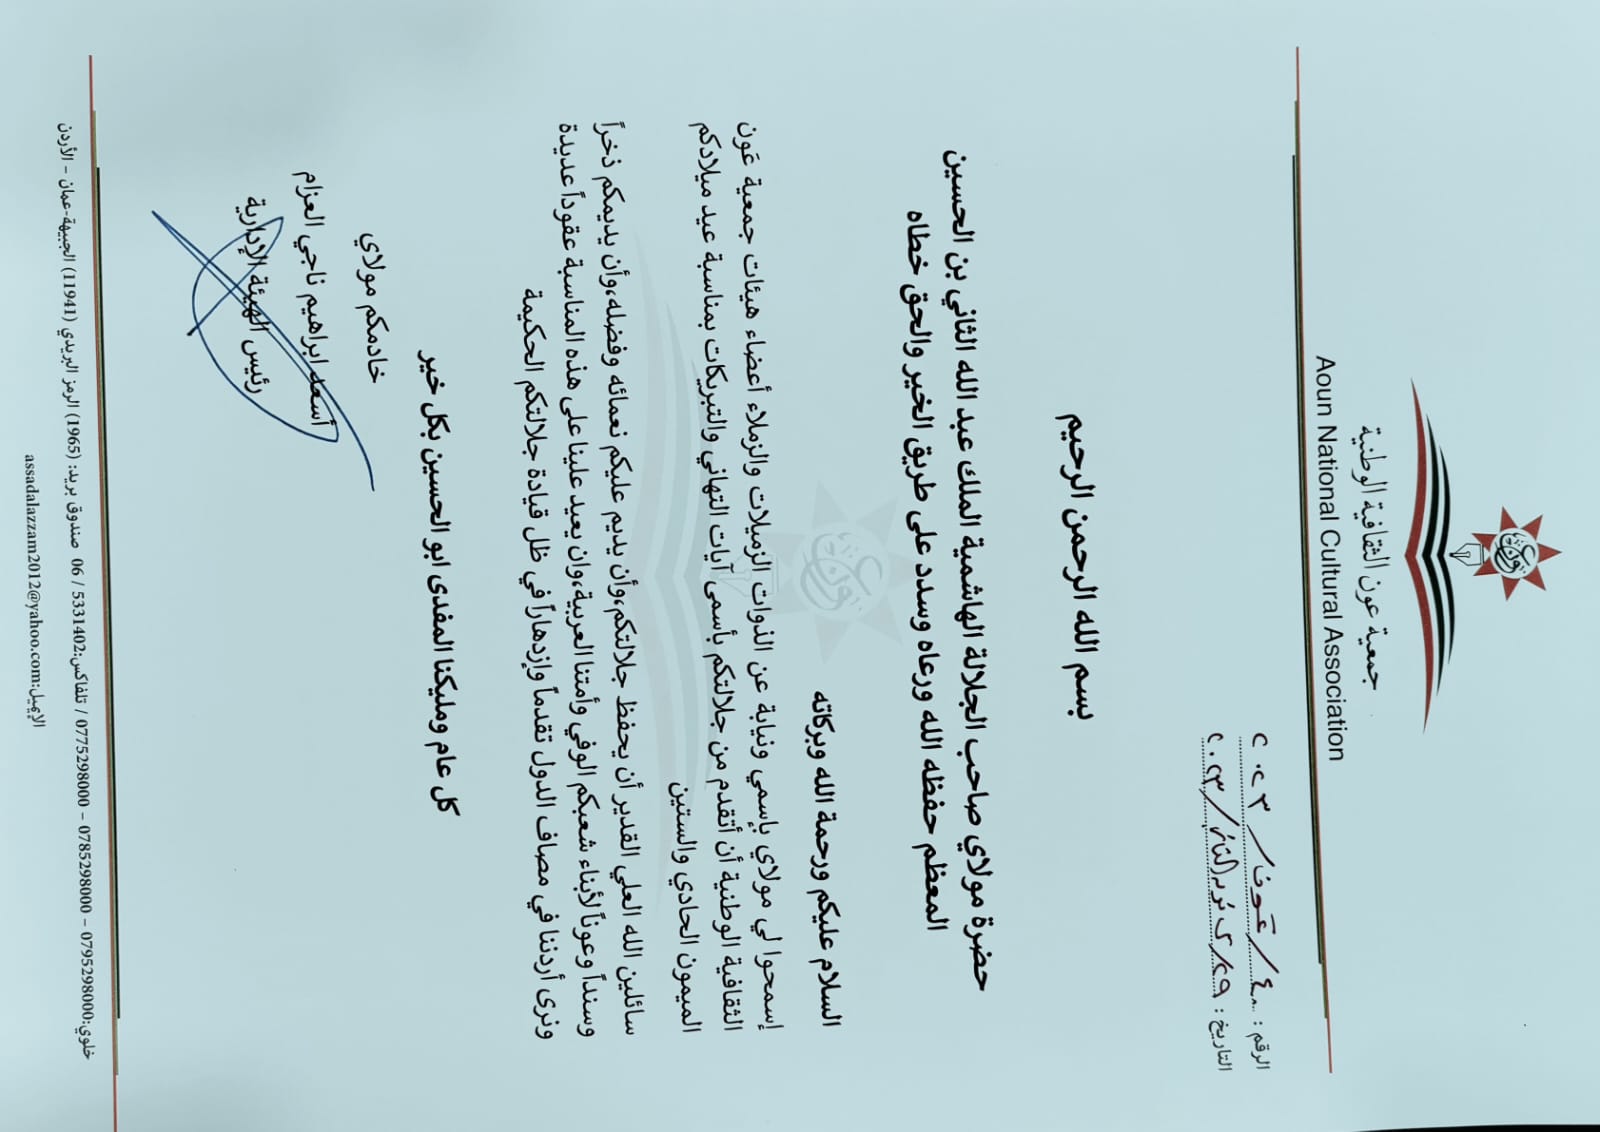 جمعية عون الثقافية الوطنية
Aoun National Cultural Association
الرقم : ٤٠/عون/٢٠٢٣
التاريخ : ٢٩/كانون الثاني/٢٠٢٣
بسم الله الرحمن الرحيم
حضرة مولاي صاحب الجلالة الهاشمية الملك عبد الله الثاني بن الحسين
المعظم حفظه الله ورعاه وسدد على طريق الخير والحق خطاه
السلام عليكم ورحمة الله وبركاته
إسمحوا لي مولاي بإسمي ونيابة عن الذوات الزميلات والزملاء أعضاء هيئات جمعية عون
الثقافية الوطنية أن أتقدم من جلالتكم بأسمى آيات التهاني والتبريكات بمناسبة عيد ميلادكم
الميمون الحادي والستين
سائلين الله العلي القدير أن يحفظ جلالتكم،وأن يديم عليكم نعمائه وفضله،وأن يديمكم ذخراً
وسنداً وعوناً لأبناء شعبكم الوفي وأمتنا العربية،وان يعيد علينا على هذه المناسبة عقوداً عديدة
ونرى أردننا في مصاف الدول تقدماً وإزدهاراً في ظل قيادة جلالتكم الحكيمة
كل عام ومليكنا المفدى ابو الحسين بكل خير
خادمكم مولاي
أسعد ابراهيم ناجي العزام
رئيس الهيئة الإدارية
خلوي:0795298000 – 0785298000 – 0775298000 / تلفاكس:5331402 / 06 صندوق بريد: (1965) الرمز البريدي (11941) الجبيهة-عمان – الأردن
الإيميل:assadalazzam2012@yahoo.com